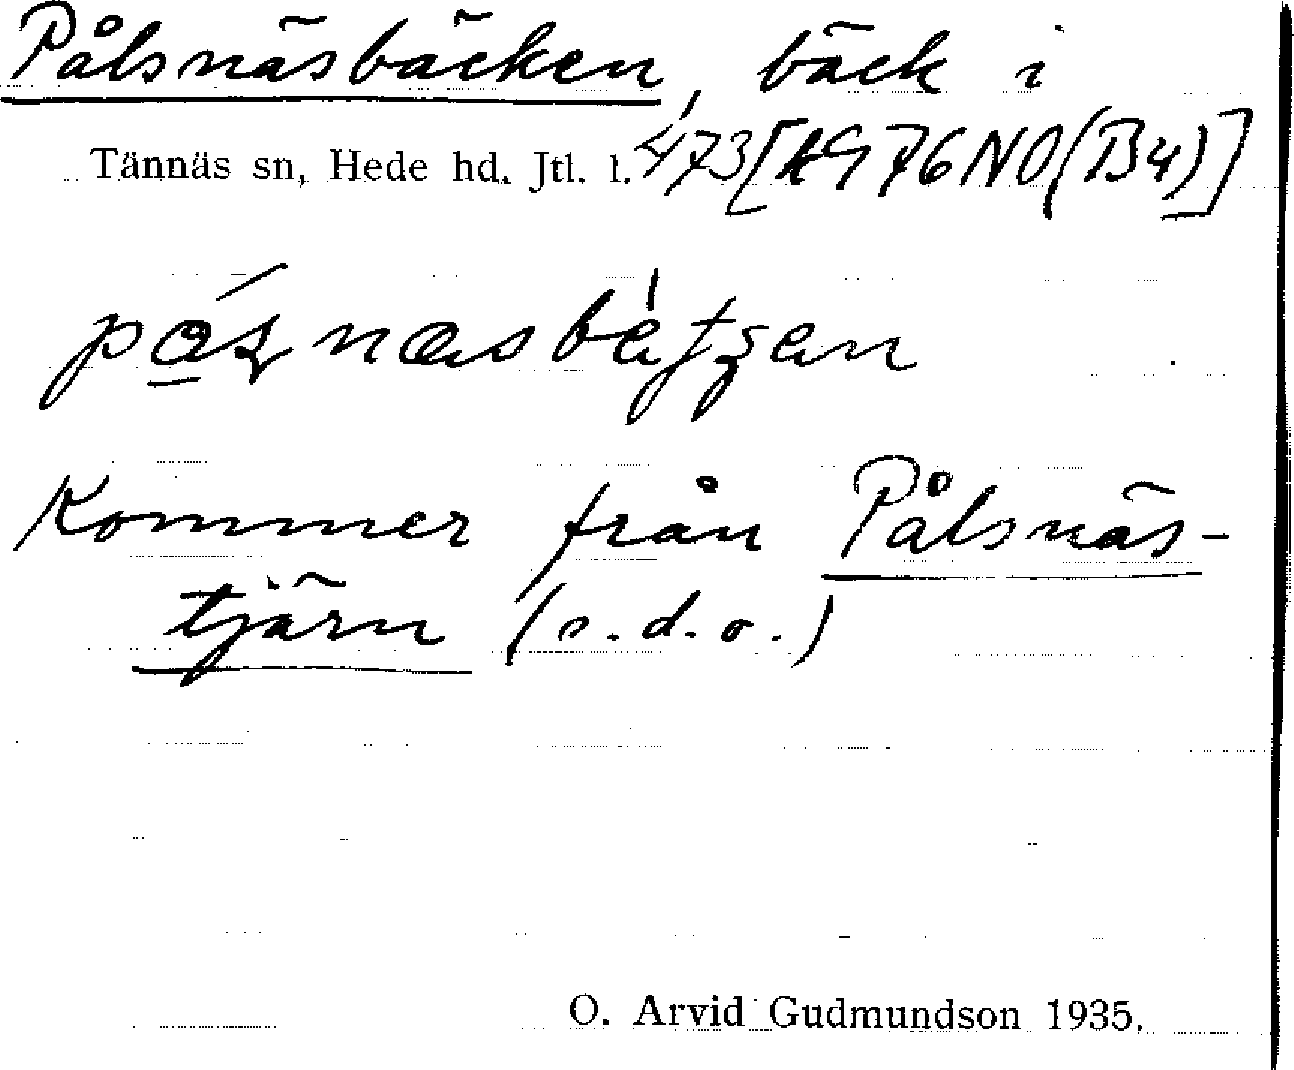 Pålsnäsbäcken, bäck i
Tännäs sn, Hede hd. Jtl. l. 473 [AG 76 NO (B4)]
Kommer från Pålsnäs-
tjärn (s.d.o.)
O. Arvid Gudmundson 1935.